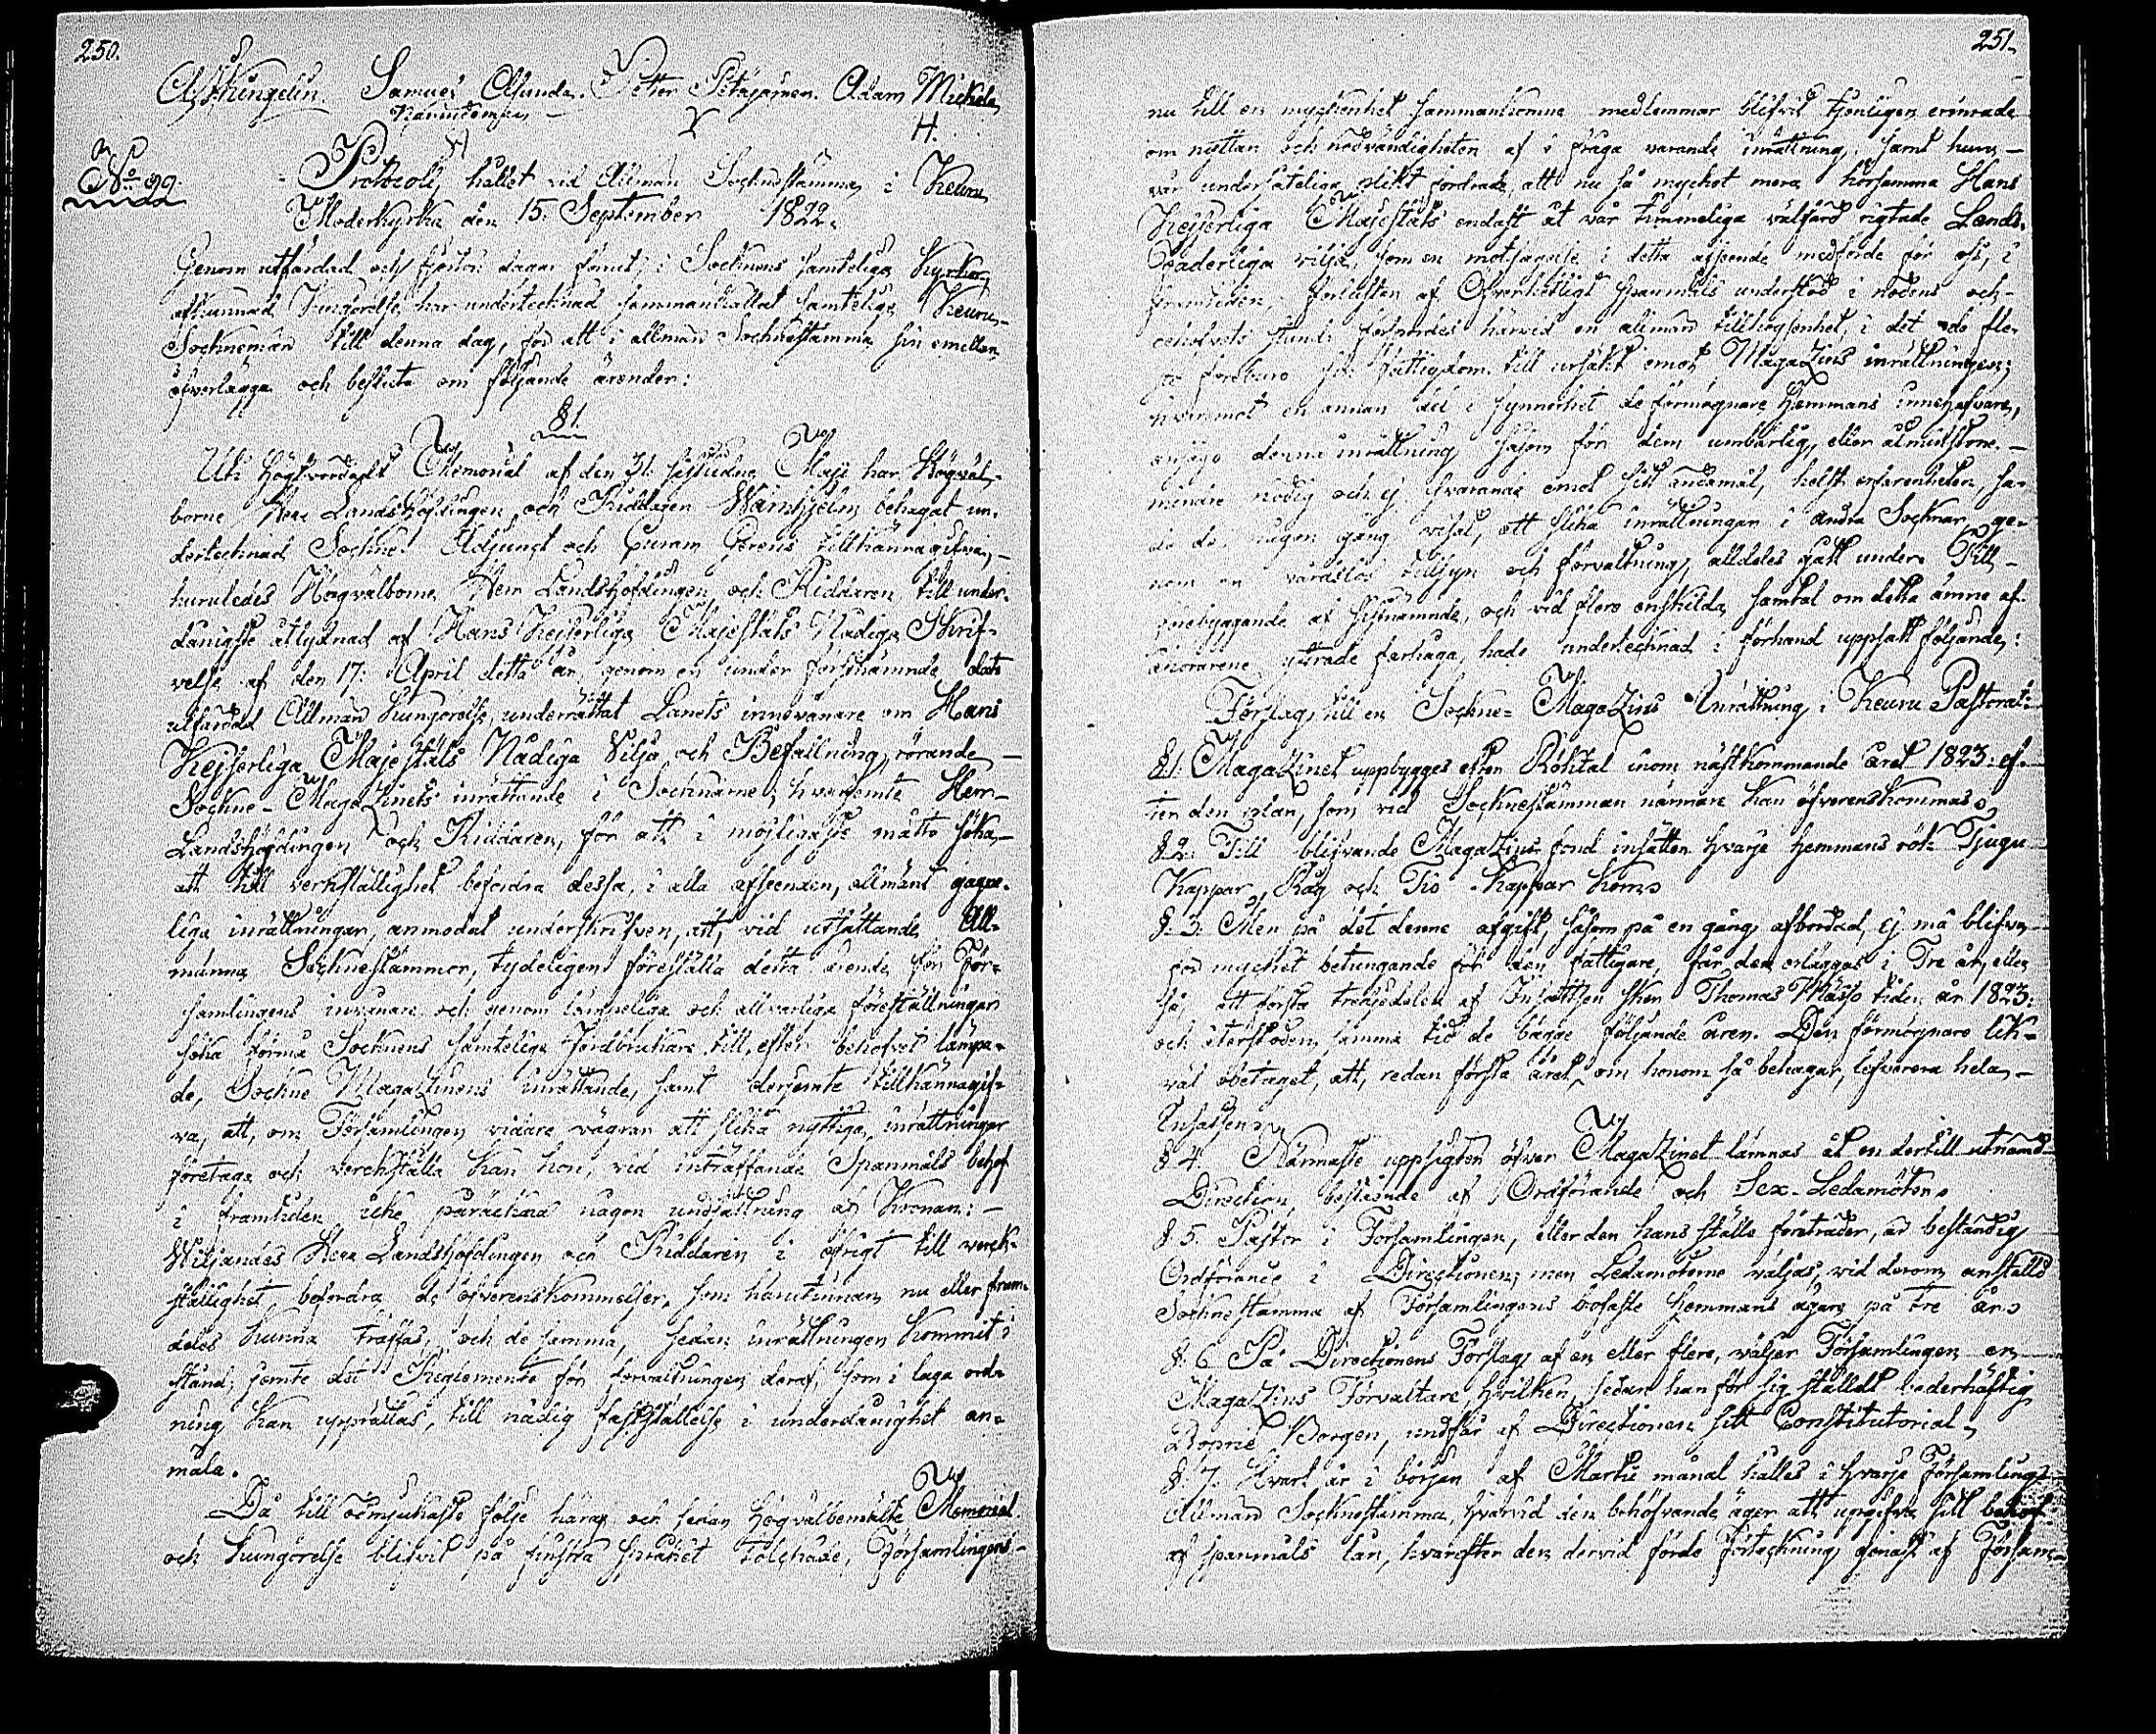 250.
Samuel Asunda. Petter Petäjämen. Adam Mickola
Nämndemän
H.
No 99.
Protocoll, hållet vid Allmän Socknestämma, i Keuru
Moderkyrka den 15. September 1822.
Genom utfärdad och fjorton dagar förut, i Socknens samteliga Kyrkor,
afkunnad Kungörelse, har undertecknad sammankallat samtelige Keuru-
Sockneman till denna dag, för att i allmän Socknestämma sin emellan
öfverlägga och besluta om följande ärender:
§ 1.
Uti Högtvördadt Memorial af den 31. sistledne Maji har Högväl-
borne Herr Landshöfdingen och Riddaren Wärnhjelm behagat un-
dertecknad Sockne- Adjunct och Curam Gerens tillkännagifva,
huruledes Högvälborne Herr Landshöfdingen och Riddaren till under-
dånigste åtlydnad af Hans Kejserliga Majestäts Nådiga Skrif-
velse af den 17. April detta år, genom en under förstnämnde dato
utfärdad Allmän Kungörelse, underrättat Länets innevånare om Hans
Kejserliga Majestäts Nådiga Vilja och Befallning, rörande
Sockne-Magazinets inrättande i Socknarne; hvarjemte Herr
Landshöfdingen och Riddaren, för att i möjligaste måtto söka
att till verkställighet befordra dessa, i alla afseenden, allmänt gagne-
liga inrättningar, anmodat underskrifven, att, vid utsättande All-
männa Socknestämmor, tydeligen föreställa detta ärende för För-
samlingens invånare och genom lämpeliga och allvarliga föreställningar
söka förmå Socknens samteliga Jordbrukare till, efter behofvet lämpa-
de, Sockne Magazinens inrättande, samt derjemte tillkännagif-
va, att, om Församlingen vidare vägrar att slika nyttiga inrättningar
företaga och verckställa kan hon, vid inträffande Spanmåls behof
i framtiden icke påräkna någon undsättning af Kronan: -
Wiljandes Herr Landshöfdingen och Riddaren i öfrigt till verck-
ställighet befordra de öfverenskommelser, som härutinnan nu eller fram-
deles kunna träffas, och de samma, sedan inrättningen kommit i
stånd, jemte det Reglemente för förvaltningen deraf, som i laga ord-
ning kan upprättas, till nådig fastställelse i underdånighet an-
mäla.
Då till ödmjukaste följe häraf och sedan Högvälbemälte Memorial
och Kungörelse blifvit på finska språket tolckade, Församlingens
251.
nu till en myckenhet sammankomne medlemmar blifvit tjenligen erinrade
om nyttan och nödvändigheten af i fråga varande inrättning, samt huru
vår undersåteliga plikt fordrade, att nu så mycket mera hörsamma Hans
Kejserliga Majestäts endast åt vår timmeliga välfärd rigtade Lands-
Faderliga vilja, som en motsägelse i detta afseende medförde för oss, i
framtiden, förlusten af Öfverhetligt spanmåls understöd i nödens och
behofvets stund: förspordes härvid en allmän tillhogsenhet, i det de fle-
ste föreburo sin fattigdom till ursäkt emot Magazins inrättningen;
hvaremot en annan del i synnerhet de förmögnare Hemmans innehafvare,
ansågo denna inrättning såsom för dem umbärlig, eller åtminstone
mindre nödig och ej svarande emot sitt ändamål, helst erfarenheten, ha-
de de någon gång visat, att slika inrättningar i andra Socknar, ge-
nom en vårdslös tillsyn och förvaltning, alldeles gått under. Till
förebyggande af sistnämnde, och vid flere enskilda samtal om detta ämne af
yttrade farhåga, hade undertecknad i förhand uppsatt följande:
Förslag till en Sockne= Magazins Inrättning i Keuru Pastorat:
§ 1. Magazinet uppbygges efter Röktal inom nästkommande året 1823. ef-
ter den plan, som vid Sockneståmman närmare kan öfverenskommas.
§ 2. Till blifvande Magazins fond insätter hvarje hemmans rök Tjugu
Kappar Råg och Tio Kappar Korn.
§ 3. Men på det denne afgift, såsom på en gång affordrad, ej må blifva
för mycket betungande för den fattigare, får den erläggas i Tre år, eller
så, att första tredjedelen af Insattsen sker Thomas Mässo tiden år 1823.
och återstoden samma tid de bägge följande åren. Den förmögnare lik-
väl obetaget, att, redan första året, om honom så behagar, lefverera hela
Insatsen.
§ 4. Närmaste uppsigten öfver Magazinet lämnas åt en dertill utnämd
Direction, bestående af Ordförande och Sex Ledamöter.
§ 5. Pastor i Församlingen, eller den hans ställe företräder, är beständig
Ordförande i Directionen; men Ledamöterne väljas, vid derom anställd
Sockneståmma af Församlingens bofaste Hemmans ägare på tre år.
§ 6. På Directionens Förslag af en eller flere, väljer Församlingen en
Magazins Förvaltare, hvilken, sedan han för sig ställdt vederhäftig
Borgen, undfår af Directionen sitt Constitutorial.
§ 7. Hvart år i början af Martii månad hålles i hvarje Församling
Allmän Sockneståmma, hvarvid den behöfvande äger att uppgifva sitt behof
af spanmåls lån, hvarefter den dervid förde Förteckning genast af Försam-